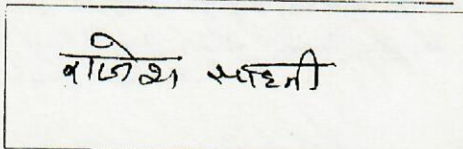 राजेश साहनी